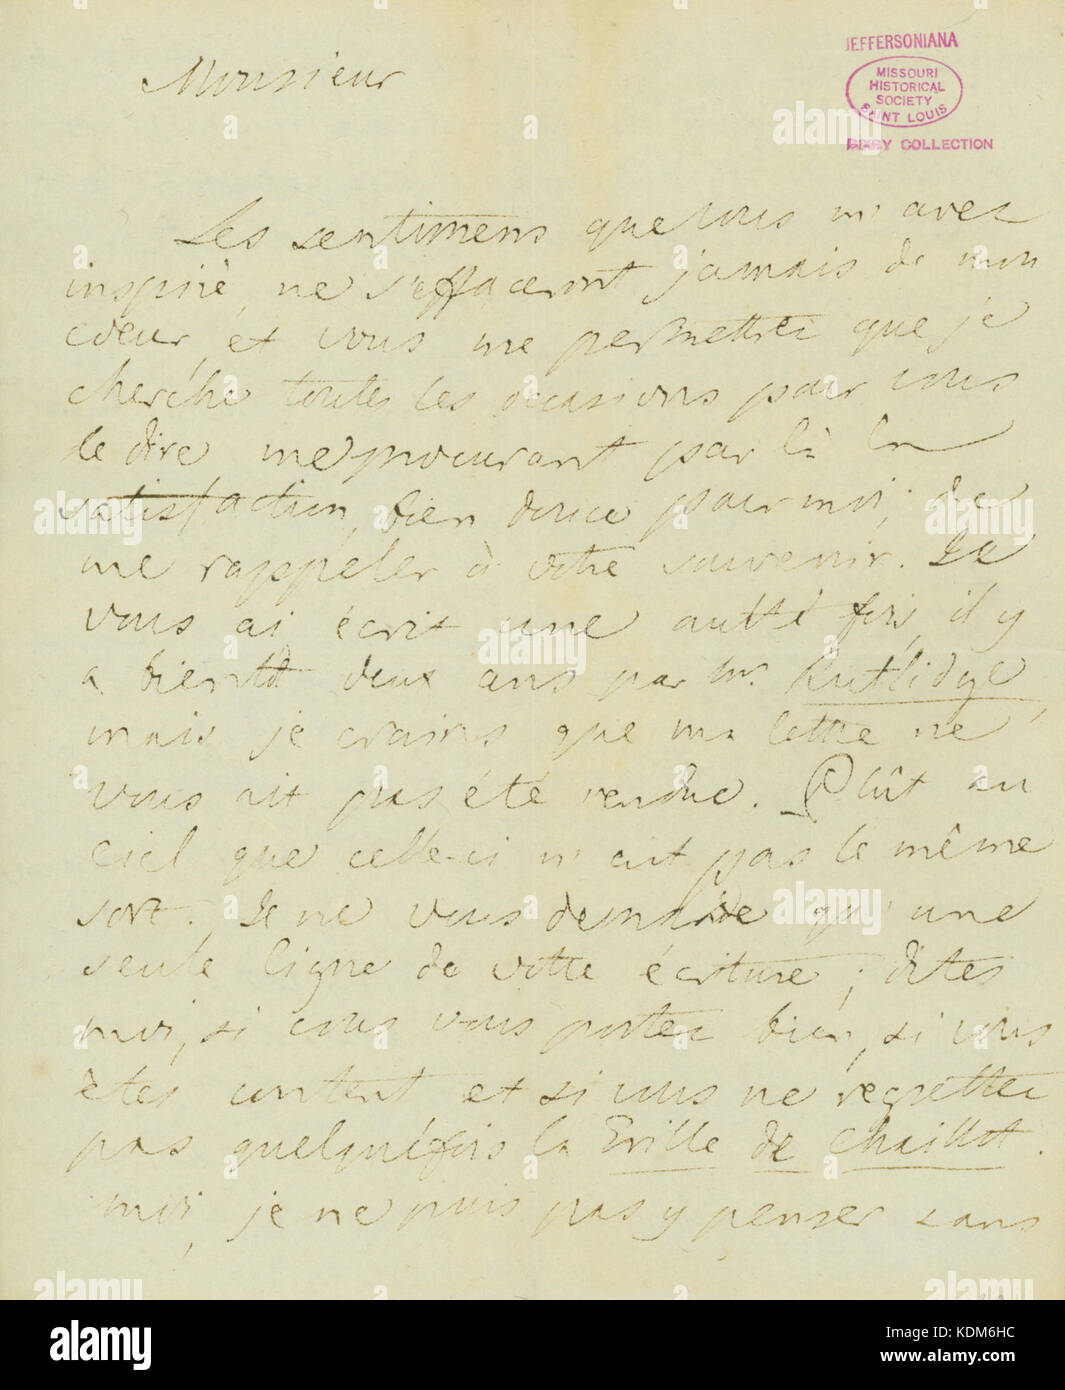 JEFFERSONIANA
MISSOURI
HISTORICAL
SOCIETY
SAINT LOUIS
BIXBY COLLECTION
Monsieur
Les sentimens que vous m'avez
inspiré, ne s'effaceront jamais de mon
coeur, et vous me permettrez que je
cherche toutes les occasions pour vous
le dire me procurant par là la
satisfaction, bien douce pour moi, de
me rappeler à votre souvenir. Je
vous ai écrit une autre fois, il y
a bientôt deux ans par Mr. Rutlidge,
mais je crains que ma lettre ne
vous ait pas été rendue. Plût au
ciel que celle-ci n'ait pas le même
sort. Je ne vous demande qu'une
seule ligne de votre écriture; dites
moi, si vous vous portez bien, si vous
êtes content et si vous ne regrettez
pas quelquefois la Grille de Chaillot.
moi, je ne puis pas y penser sans
alamy
Image ID: KDM6HC
www.alamy.com